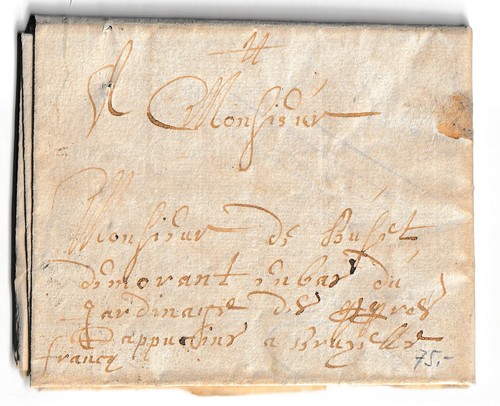 A Monsieur
Monsieur de Buset
demorant enbas du
jardinage des peres
Cappucins a Bruxelles
francq
75.-